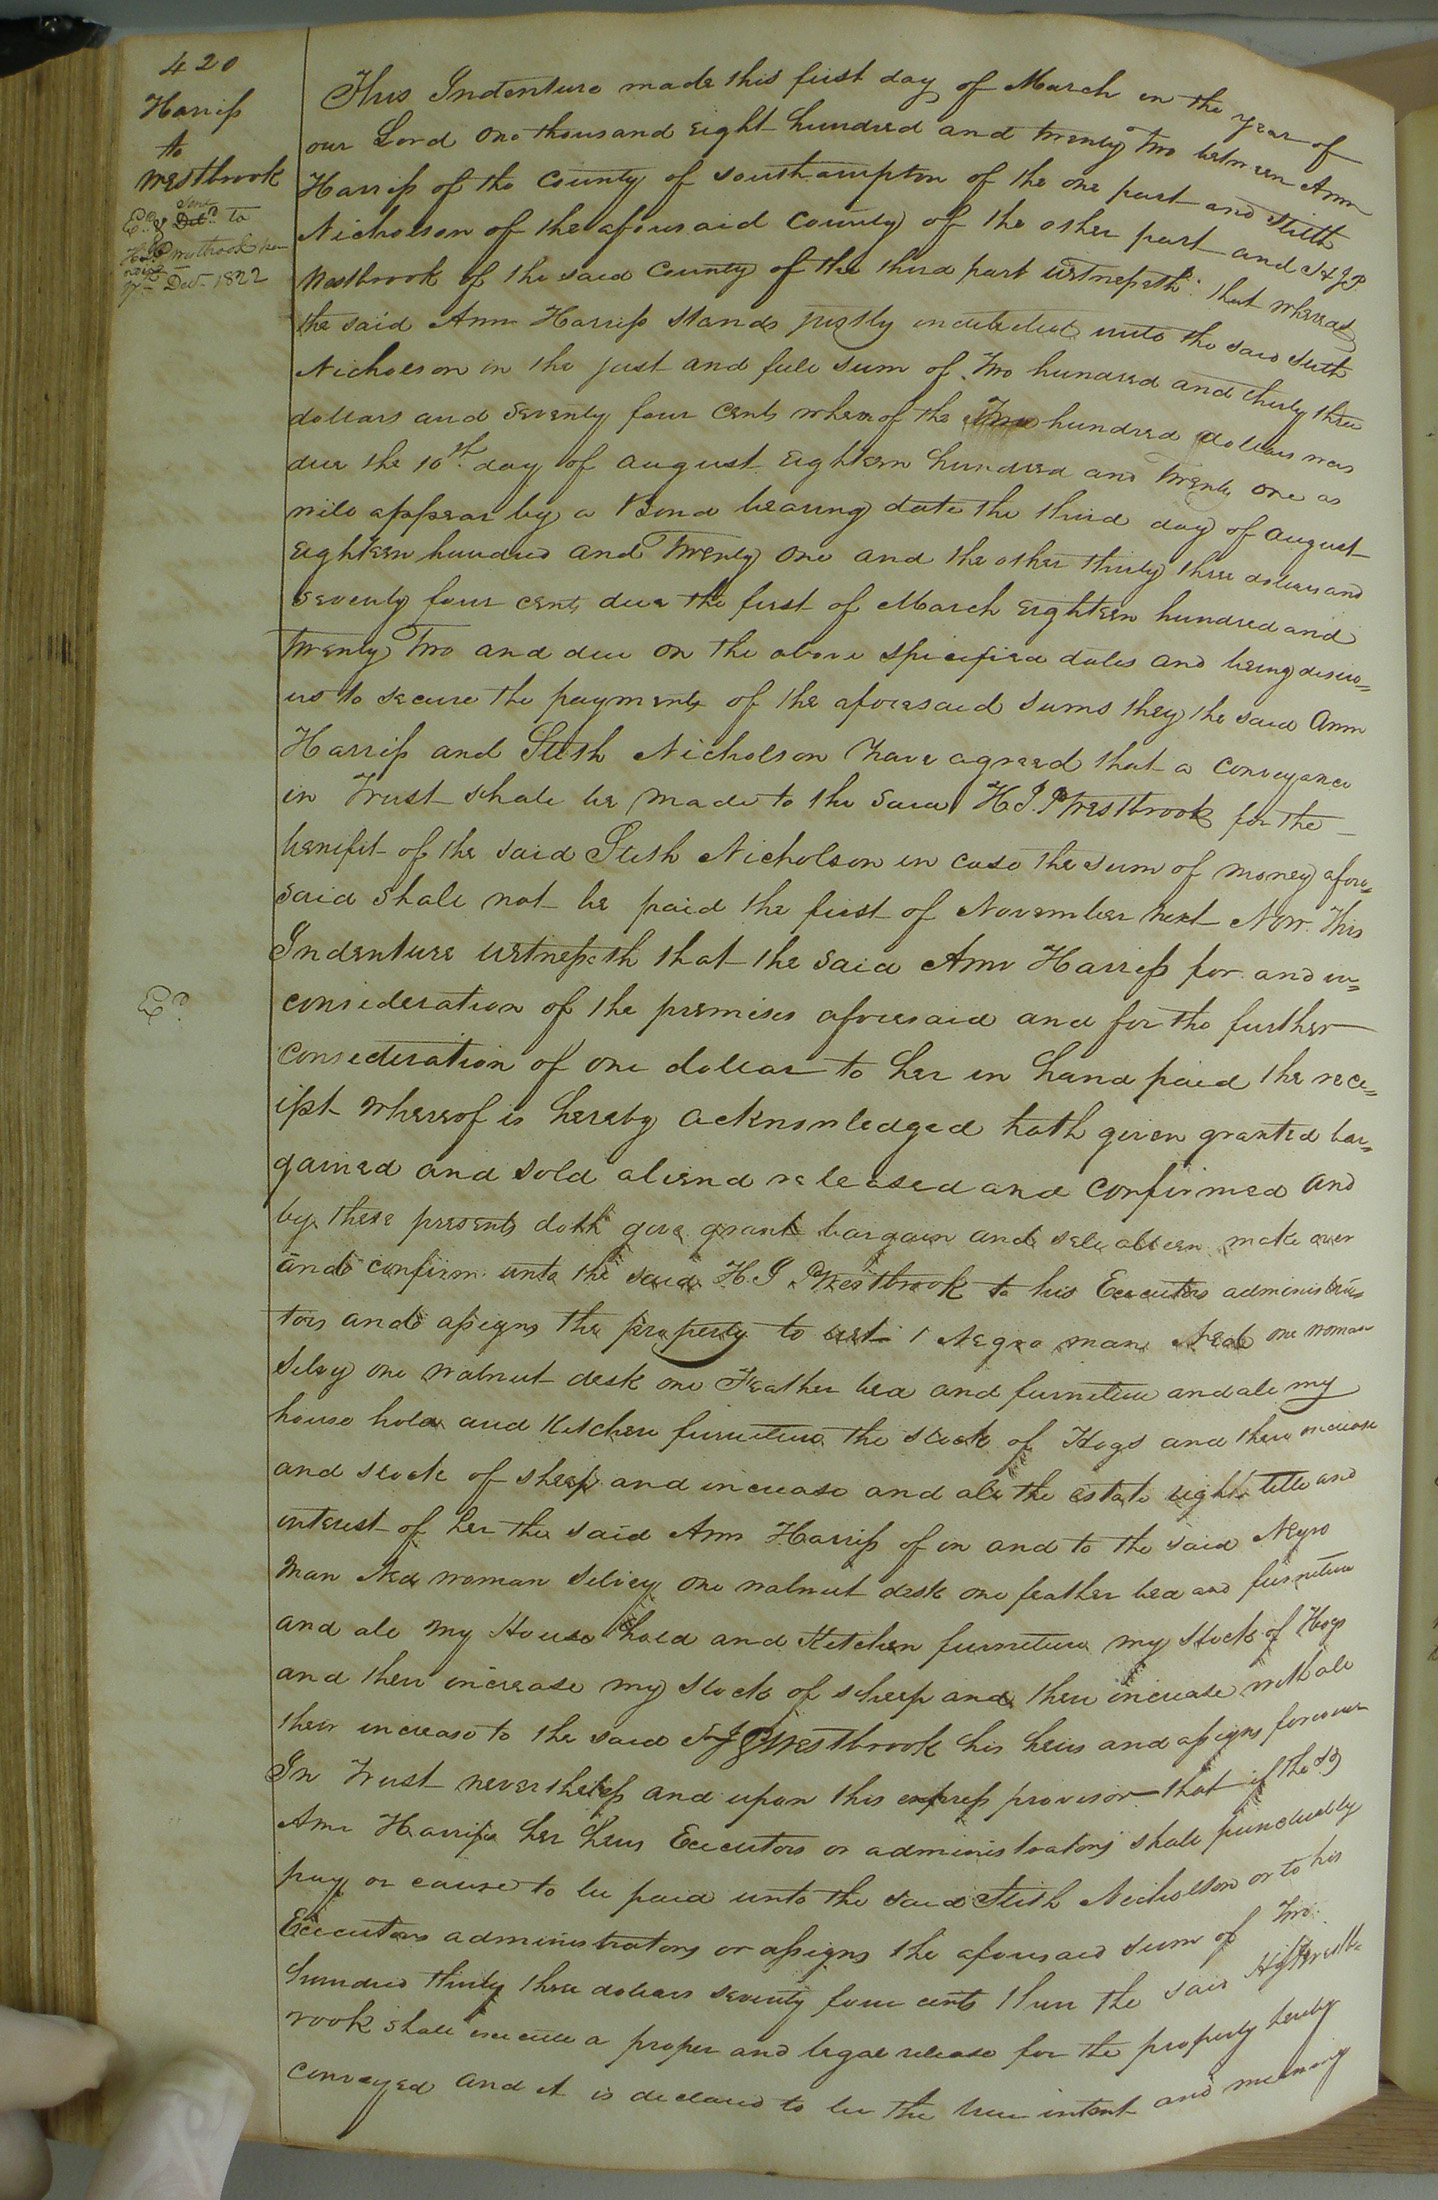 420
Harriss
to
Westbrook
Exd. & sent
Deld. to
H Westbrook
Decr. 1822
This Indenture made this first day of March in the year of
our Lord one thousand eight hundred and twenty two between Ann
Harriss of the County of Southampton of the one part and Stith
Nicholson of the aforesaid County of the other part and H J P
Westbrook of the said County of the third part witnesseth: that whereas
the said Ann Harriss stands justly indebted unto the said Stith
Nicholson in the just and full sum of Two hundred and thirty three
dollars and seventy four cents whereof the Two hundred dollars was
due the 10th day of August eighteen hundred and twenty one as
will appear by a Bond bearing date the third day of August
eighteen hundred and Twenty one and the other thirty three dollars and
seventy four cents due the first of March eighteen hundred and
twenty Two and due on the above specified dates and being desiro=
us to secure the payments of the aforesaid sums they the said Ann
Harriss and Stith Nicholson have agreed that a conveyance
in Trust shall be made to the said H J. P Westbrook for the
benifit of the said Stith Nicholson in case the sum of money afore=
said shall not be paid the first of November next Now This
Indenture witnesseth that the said Ann Harriss for and in=
Exd.
consideration of the premises aforesaid and for the further
consideration of one dollar to her in hand paid the rece=
ipt whereof is hereby acknowledged hath given granted bar=
gained and sold aliend released and confirmed and
by these presents doth give grant bargain and sell alien make over
and confirm unto the said H. J P Westbrook to his Executors administra=
tors and assigns the property to wit 1 Negro man Ned one woman
Silvy one walnut desk one Feather bed and furniture and all my
house hold and Kitchen furniture the stock of Hogs and there increase
and stock of sheep and increase and all the estate right title and
interest of her the said Ann Harriss of in and to the said Negro
man Ned woman Silvey one walnut desk one feather bed and furniture
and all my House hold and Kitchen furniture my stock of Hogs
and their increase my stock of sheep and their increase with all
their increase to the said H J P Westbrook his heirs and assigns forever
In Trust nevertheless and upon this express provisor that if the sd
Ann Harriss her heirs Executors or administrators shall punctually
pay or cause to be paid unto the said Stith Nicholson or to his
Executors administrators or assigns the aforesaid sum of Two
hundred thirty three dollars seventy four cents then the said H J P Westb=
rook shall execute a proper and legal release for the property hereby
conveyed and it is declared to be the true intent and meaning